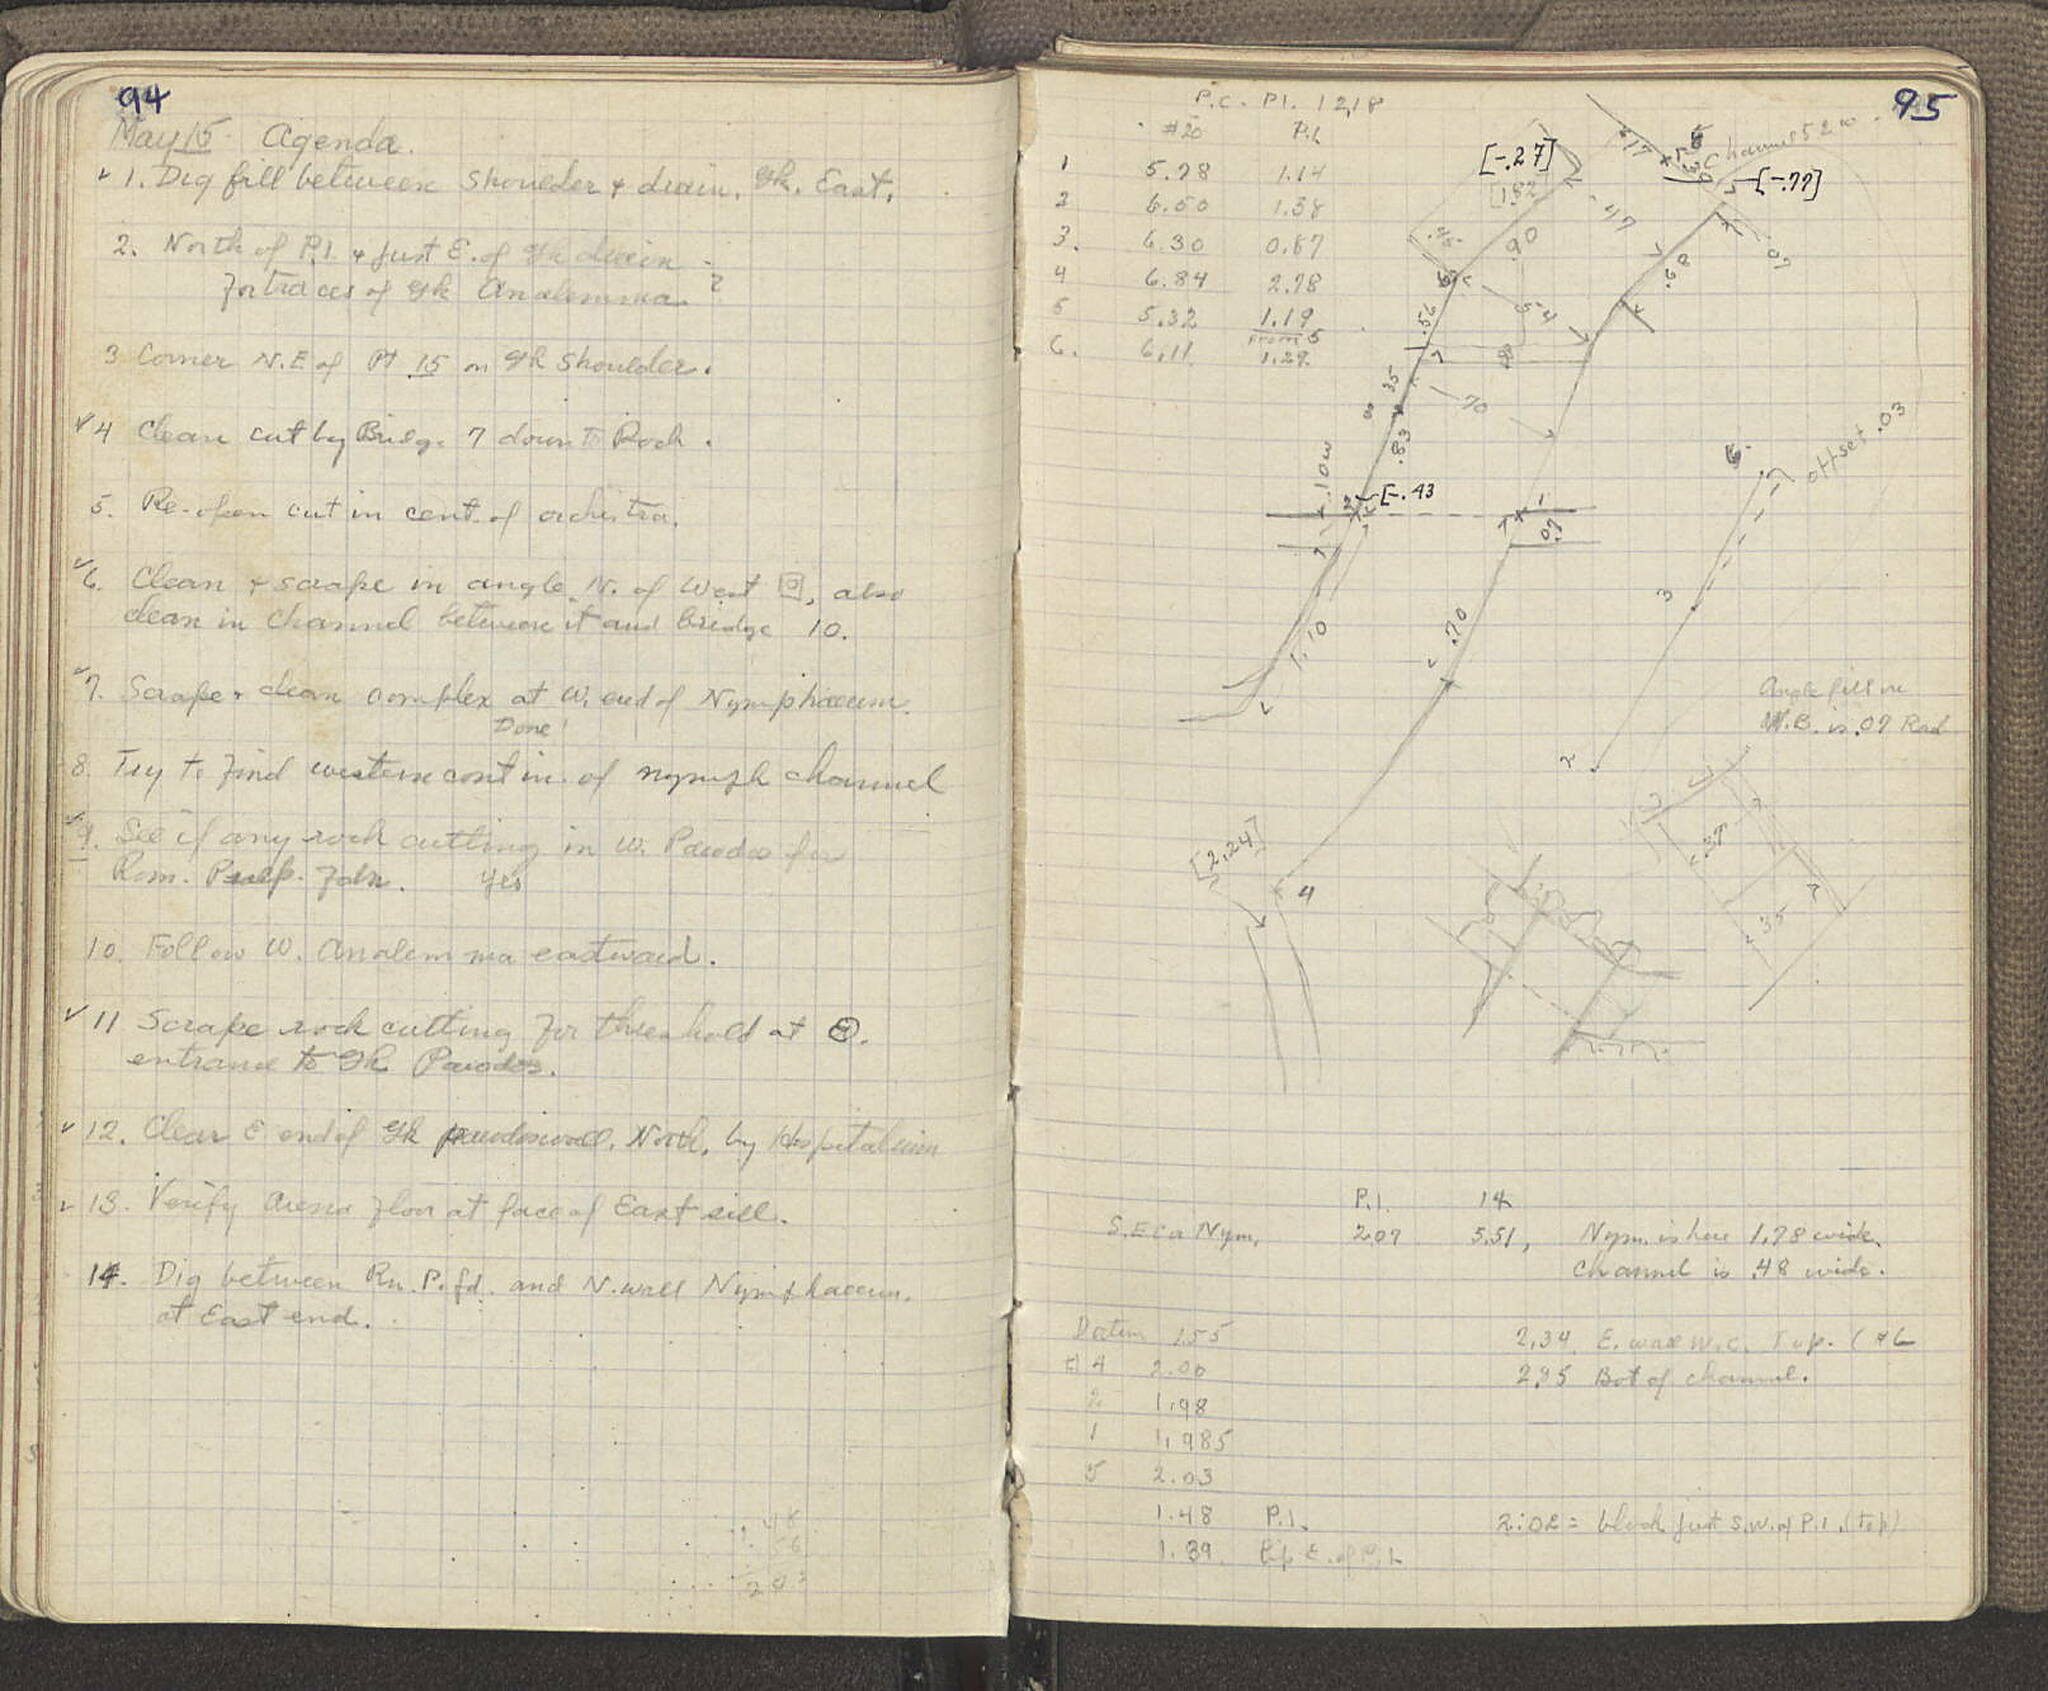 94
May 15. Agenda.
✓ 1. Dig fill between shoulder & drain, Gk. East.
2. North of P.1. & just E. of Gk drain -
For traces of Gk Analemma. ?
3 Corner N.E of Pt 15 on Gk shoulder.
✓ 4 Clean cut by Bridge 7 down to Rock.
5. Re-open cut in cent. of orchestra.
✓ 6. Clean & scrape in angle N. of West , also
clean in channel between it and bridge 10.
✓ 7. Scrape & clean complex at W. end of Nymphaeum.
Done!
8. Try to find western contin. of nymph channel
✓ 9. See if any rock cutting in W. Parodos for
Rom. Pulp. Fdn. Yes
10. Follow W. Analemma eastward.
✓ 11 Scrape rock cutting for threshold at
entrance to Gk Parodos.
✓ 12. Clear E end of Gk parodos wall, North, by Hospitalium
✓ 13. Verify Arena floor at face of East sill.
14. Dig between Rm. P. fd. and N. wall Nymphaeum.
at East end.
95
P.C. - P1. 12,18
#20 P.1.
1 5.28 1.14
2 6.50 1.38
3. 6.30 0.87
4 6.84 2.78
5 5.32 1.19
from 5
6. 6.11 1.29
[-.27]
[182]
.47
.90
.54
.56
7
.35
8
.70
.83
.10 W
[-.43
1.10
2
1
.07
.70
4
[2.24]
4.17
5
Channel 52
[-.77]
.07
.68
6.
offset .03
3
2
Angle fill in
W.B. is .07 Rad
.37
.35
P.1. 14
S.E C or Nym. 2.07 5.51, Nym. is here 1.78 wide.
channel is .48 wide.
Datum 1.55
4 2.00
2 1.98
1 1.985
5 2.03
1.48 P.1.
1.39 Lip E. of P.1
2.34 E. wall W.C. Top. (#6
2.95 Bot of channel.
2.02 = block just S.W. of P.1. (top)